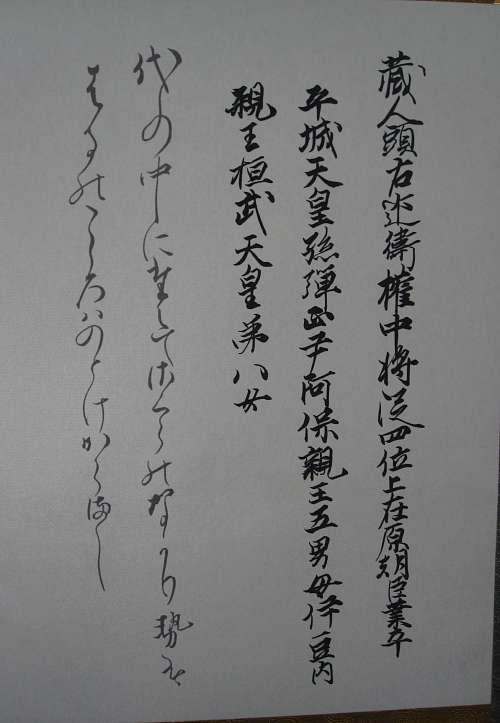 蔵人頭右近衛権中将従四位上在原朝臣業平
平城天皇孫弾正尹阿保親王五男母伊豆内
親王桓武天皇弟八女
代の中にたえてさくらのなかり勢は
はるのこゝろはのとけからまし